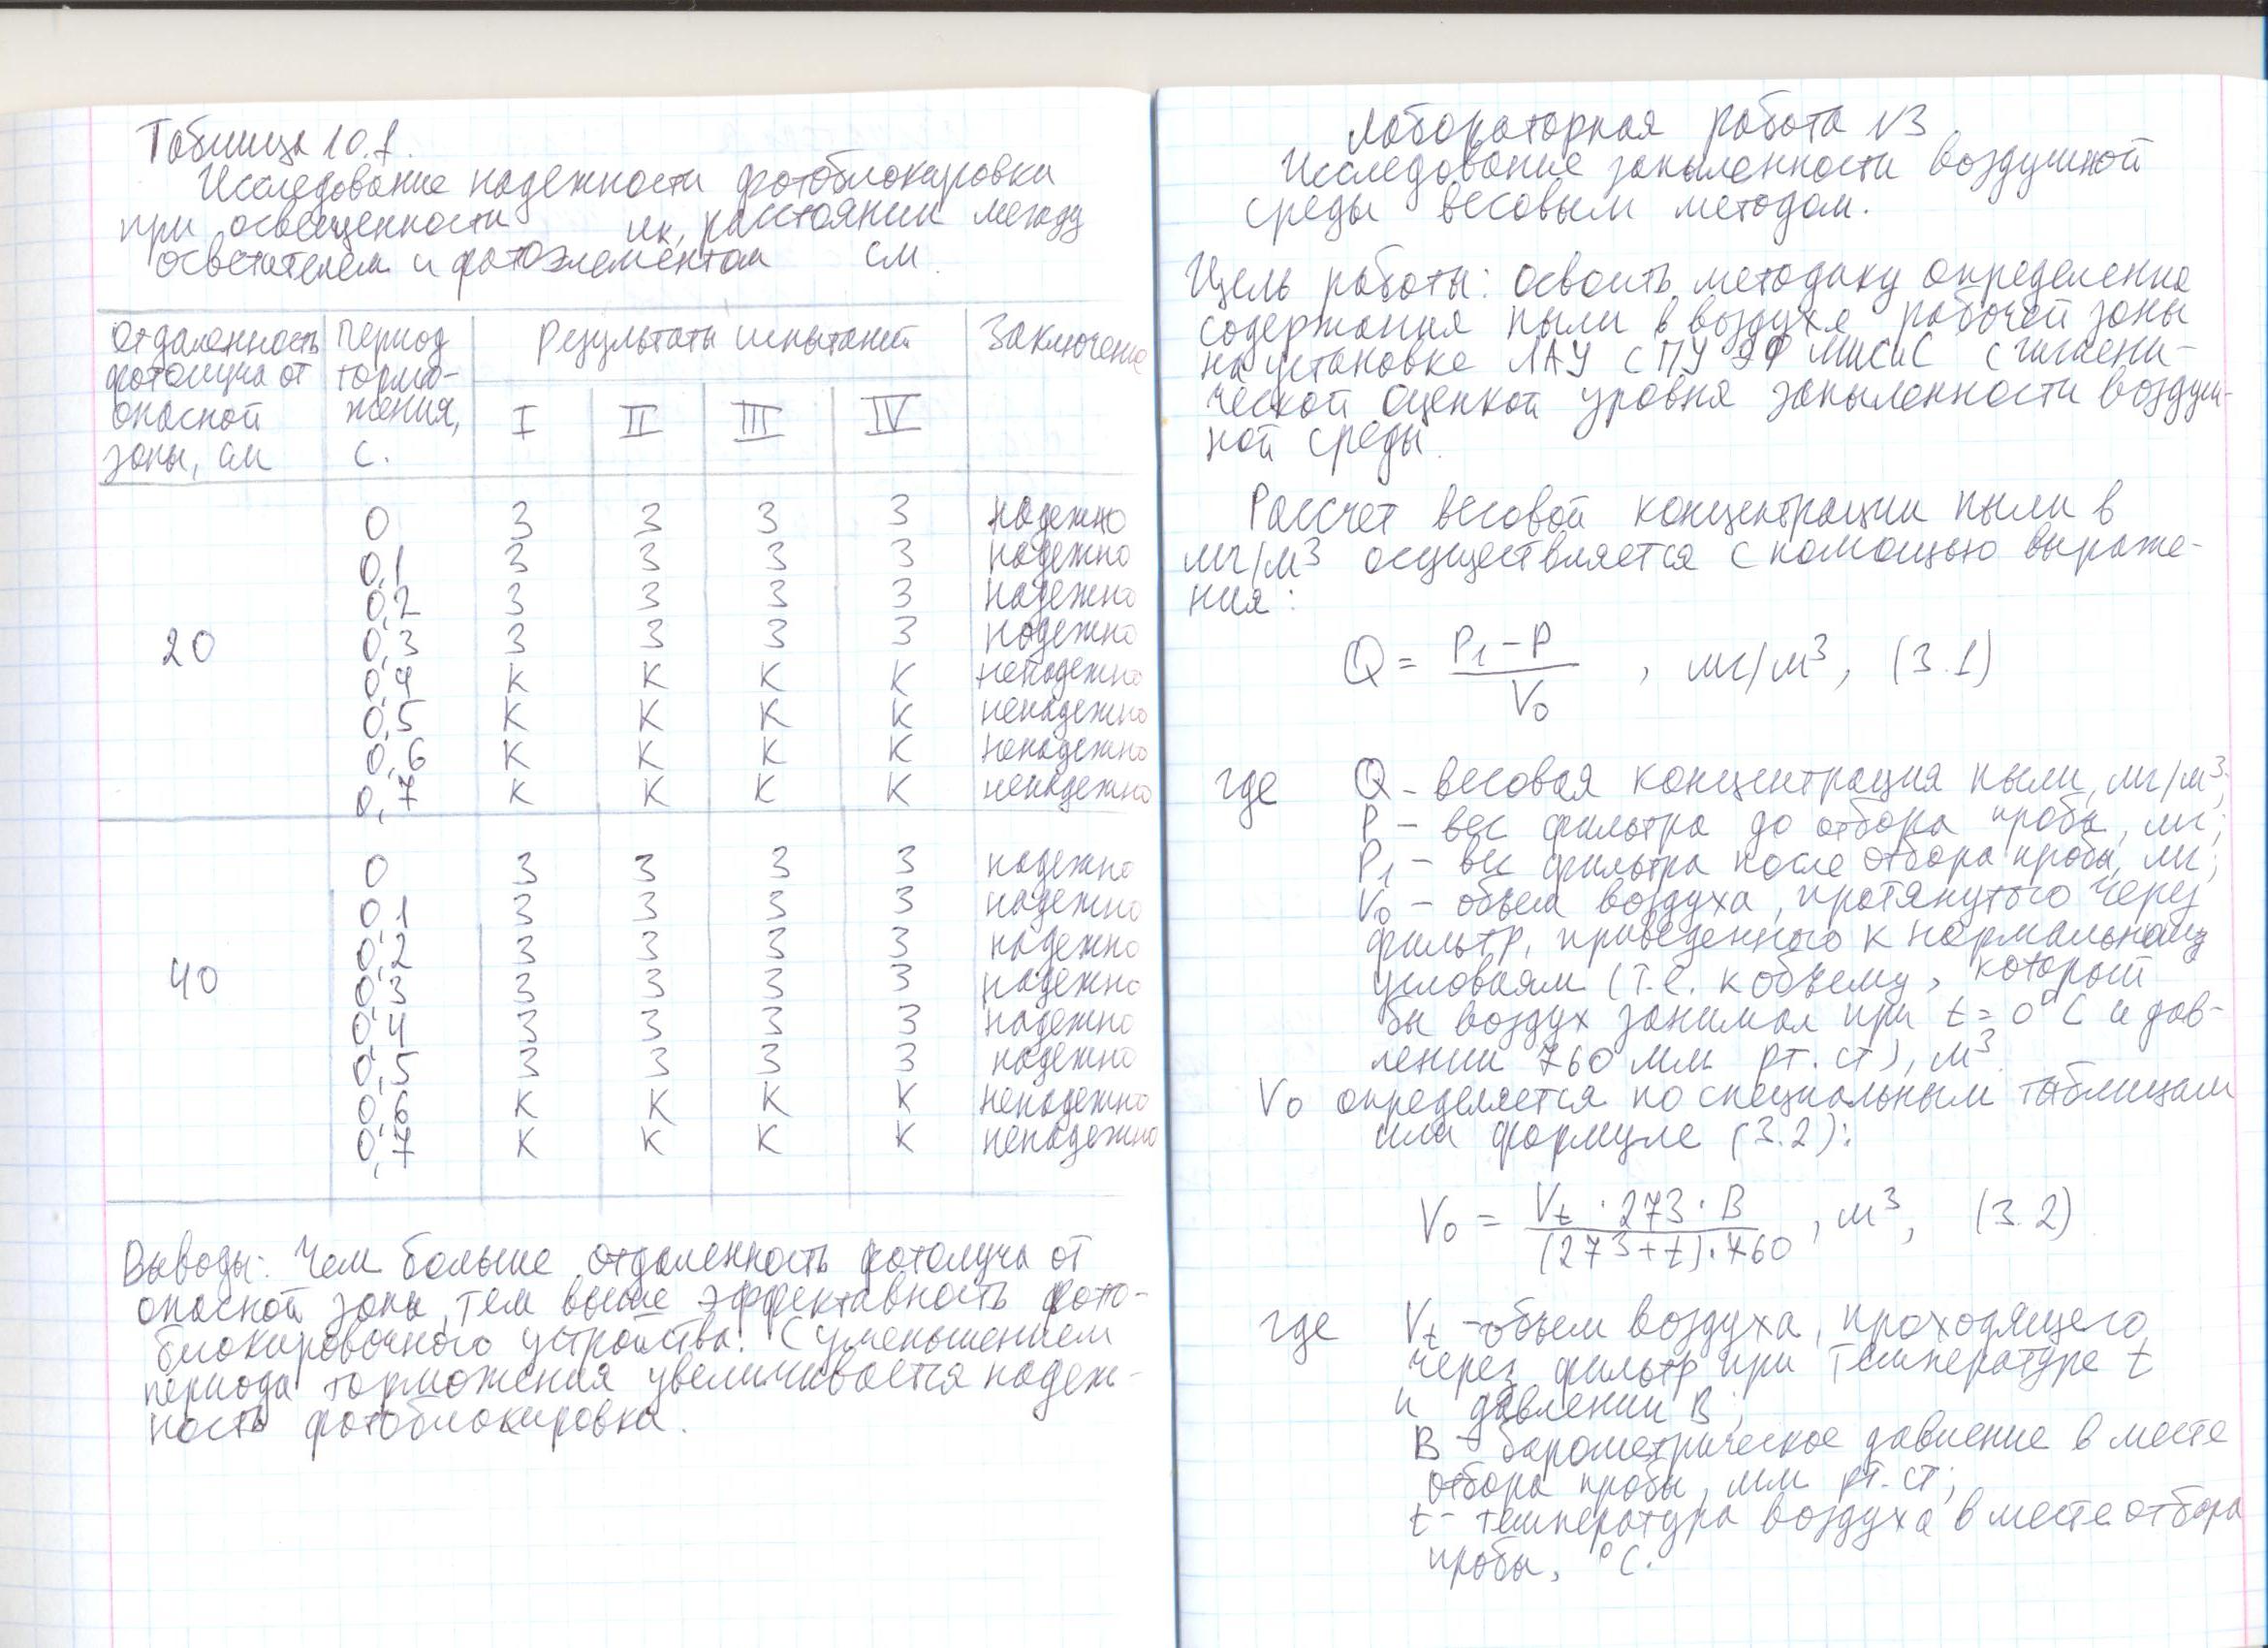 Таблица 10.1.
Исследование надежности фотоблокировки
при освещенности лк, расстоянии между
осветителем и фотоэлементом см.
Отдаленность фотолуча от опасной зоны, см | Период тормо-жения, с. | Результаты испытаний | Заключение
I II III IV
20
0 З З З З надежно
0,1 З З З З надежно
0,2 З З З З надежно
0,3 З З З З надежно
0,4 К К К К ненадежно
0,5 К К К К ненадежно
0,6 К К К К ненадежно
0,7 К К К К ненадежно
40
0 З З З З надежно
0,1 З З З З надежно
0,2 З З З З надежно
0,3 З З З З надежно
0,4 З З З З надежно
0,5 З З З З надежно
0,6 К К К К ненадежно
0,7 К К К К ненадежно
Выводы: Чем больше отдаленность фотолуча от
опасной зоны, тем выше эффективность фото-
блокировочного устройства. С уменьшением
периода торможения увеличивается надеж-
ность фотоблокировки.
Лабораторная работа N3
Исследование запыленности воздушной
среды весовым методом.
Цель работы: освоить методику определения
содержания пыли в воздухе рабочей зоны
на установке ЛАУ СПУ ЭФ МИСиС с гигиени-
ческой оценкой уровня запыленности воздуш-
ной среды.
Рассчет весовой концентрации пыли в
мг/м³ осуществляется с помощью выраже-
ния:
Q = (P₁ - P) / V₀ , мг/м³, (3.1)
где Q - весовая концентрация пыли, мг/м³;
P - вес фильтра до отбора пробы, мг;
P₁ - вес фильтра после отбора пробы, мг;
V₀ - объем воздуха, протянутого через
фильтр, приведенного к нормальному
условиям (т.е. к объему, который
бы воздух занимал при t = 0°C и дав-
лении 760 мм. рт. ст), м³.
V₀ определяется по специальным таблицам
или формуле (3.2):
V₀ = (Vt · 273 · B) / ((273+t) · 760) , м³, (3.2)
где Vt - объем воздуха, проходящего
через фильтр при температуре t
и давлении B;
B - барометрическое давление в месте
отбора пробы, мм рт. ст;
t - температура воздуха в месте отбора
пробы, °C.